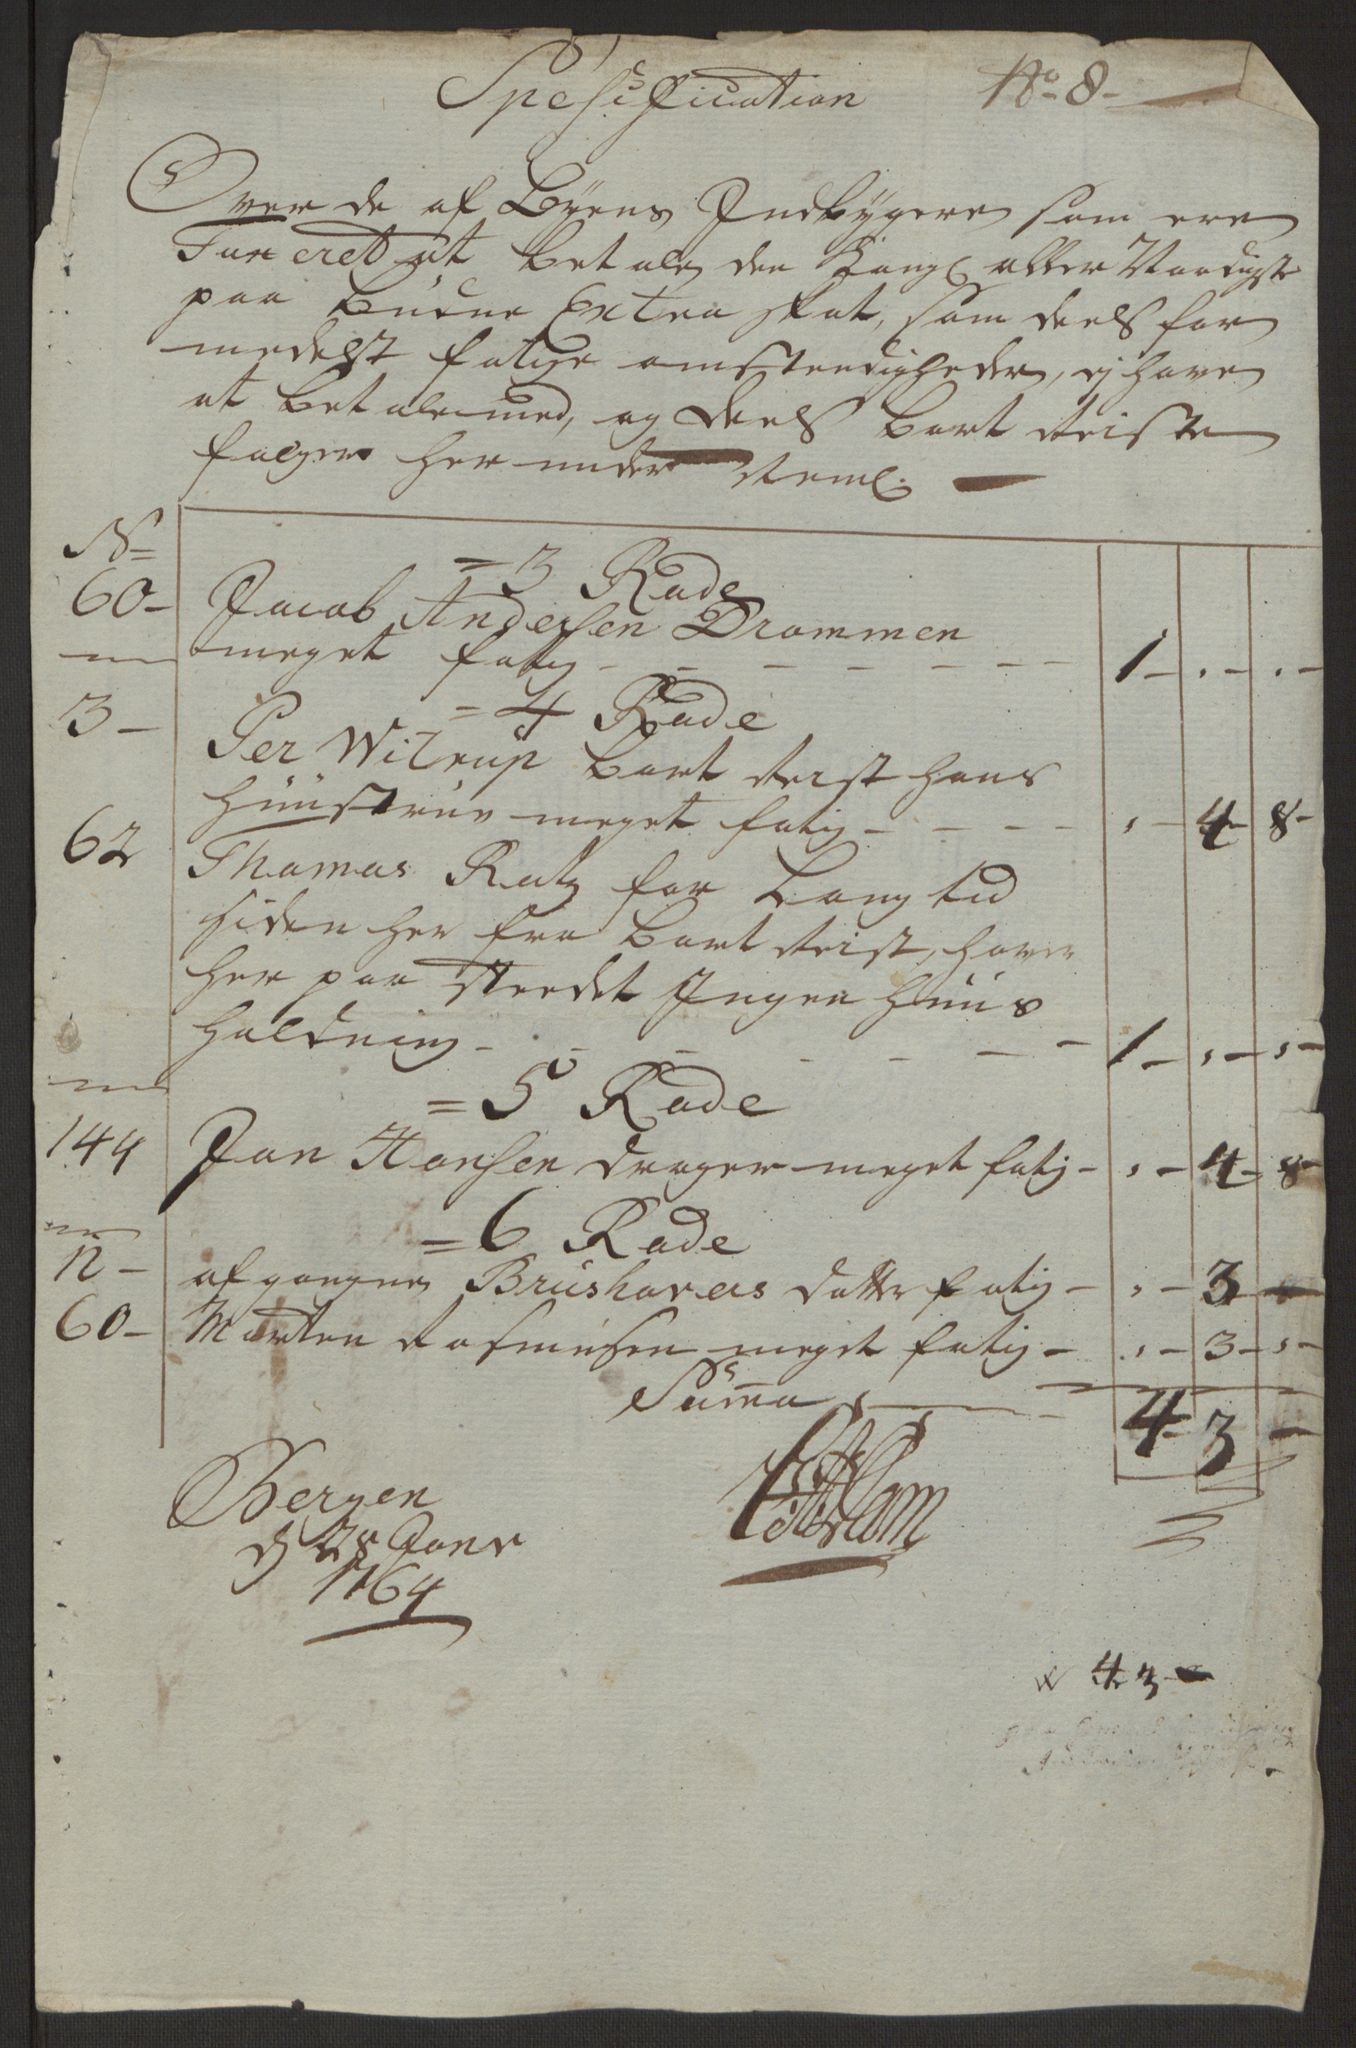 Spesification No 8-
Over de af Byens Indbygere som ere
Tanceret at betale den Kongl aller Naadigst
paa budne Extra skat, som deels for
medelst fatige omstendigheder, ej have
at betale med, og deels bort Reiste
følger her under Neml.
No
= 3 Rade
60- Jacob Andersen Drammen
meget fatig - - - - - - 1 - . - . -
= 4 Rade
3- Per Witrup bort Reist hans
Huustrue meget fatig - - - - . - 4 - 8 -
62 Thomas Ratz for Lang tid
siden her fra bort Reist, haver
her paa Stædet Ingen Huus
holdning - - - - - - 1 - . - . -
= 5 Rade
144 Jan Hansen drager meget fatig - . - 4 - 8
= 6 Rade
12 - afgangne Brushavers datter fatig - . - 3 -
60 - Morten Rasmusen meget fatig - . - 3 - . -
Suma 4 3 -
Bergen
d 28 Janv
1764
4 3 -